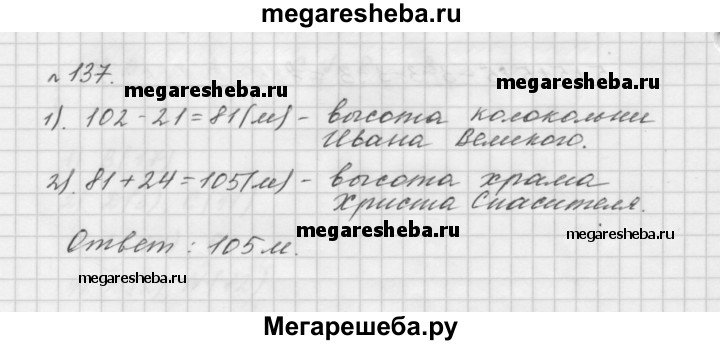 megaresheba.ru
№ 137.
megaresheba.ru
megaresheba.ru
1). 102 - 21 = 81(м) - высота колокольни
Ивана Великого.
2). 81 + 24 = 105(м) - высота храма
Христа Спасителя.
megaresheba.ru
megaresheba.ru
Ответ : 105 м.
megaresheba.ru
Мегарешеба.ру